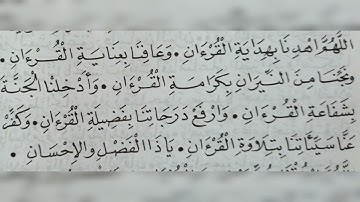 اللَّهُمَّ اهْدِنَا بِهِدَايَةِ الْقُرْءَانِ • وَعَافِنَا بِعِنَايَةِ الْقُرْءَانِ •
وَنَجِّنَا مِنَ النِّيرَانِ بِكَرَامَةِ الْقُرْءَانِ • وَأَدْخِلْنَا الْجَنَّةَ
بِشَفَاعَةِ الْقُرْءَانِ • وَارْفَعْ دَرَجَاتِنَا بِفَضِيلَةِ الْقُرْءَانِ • وَكَفِّرْ
عَنَّا سَيِّئَاتِنَا بِتِلَاوَةِ الْقُرْءَانِ • يَا ذَا الْفَضْلِ وَالْإِحْسَانِ •